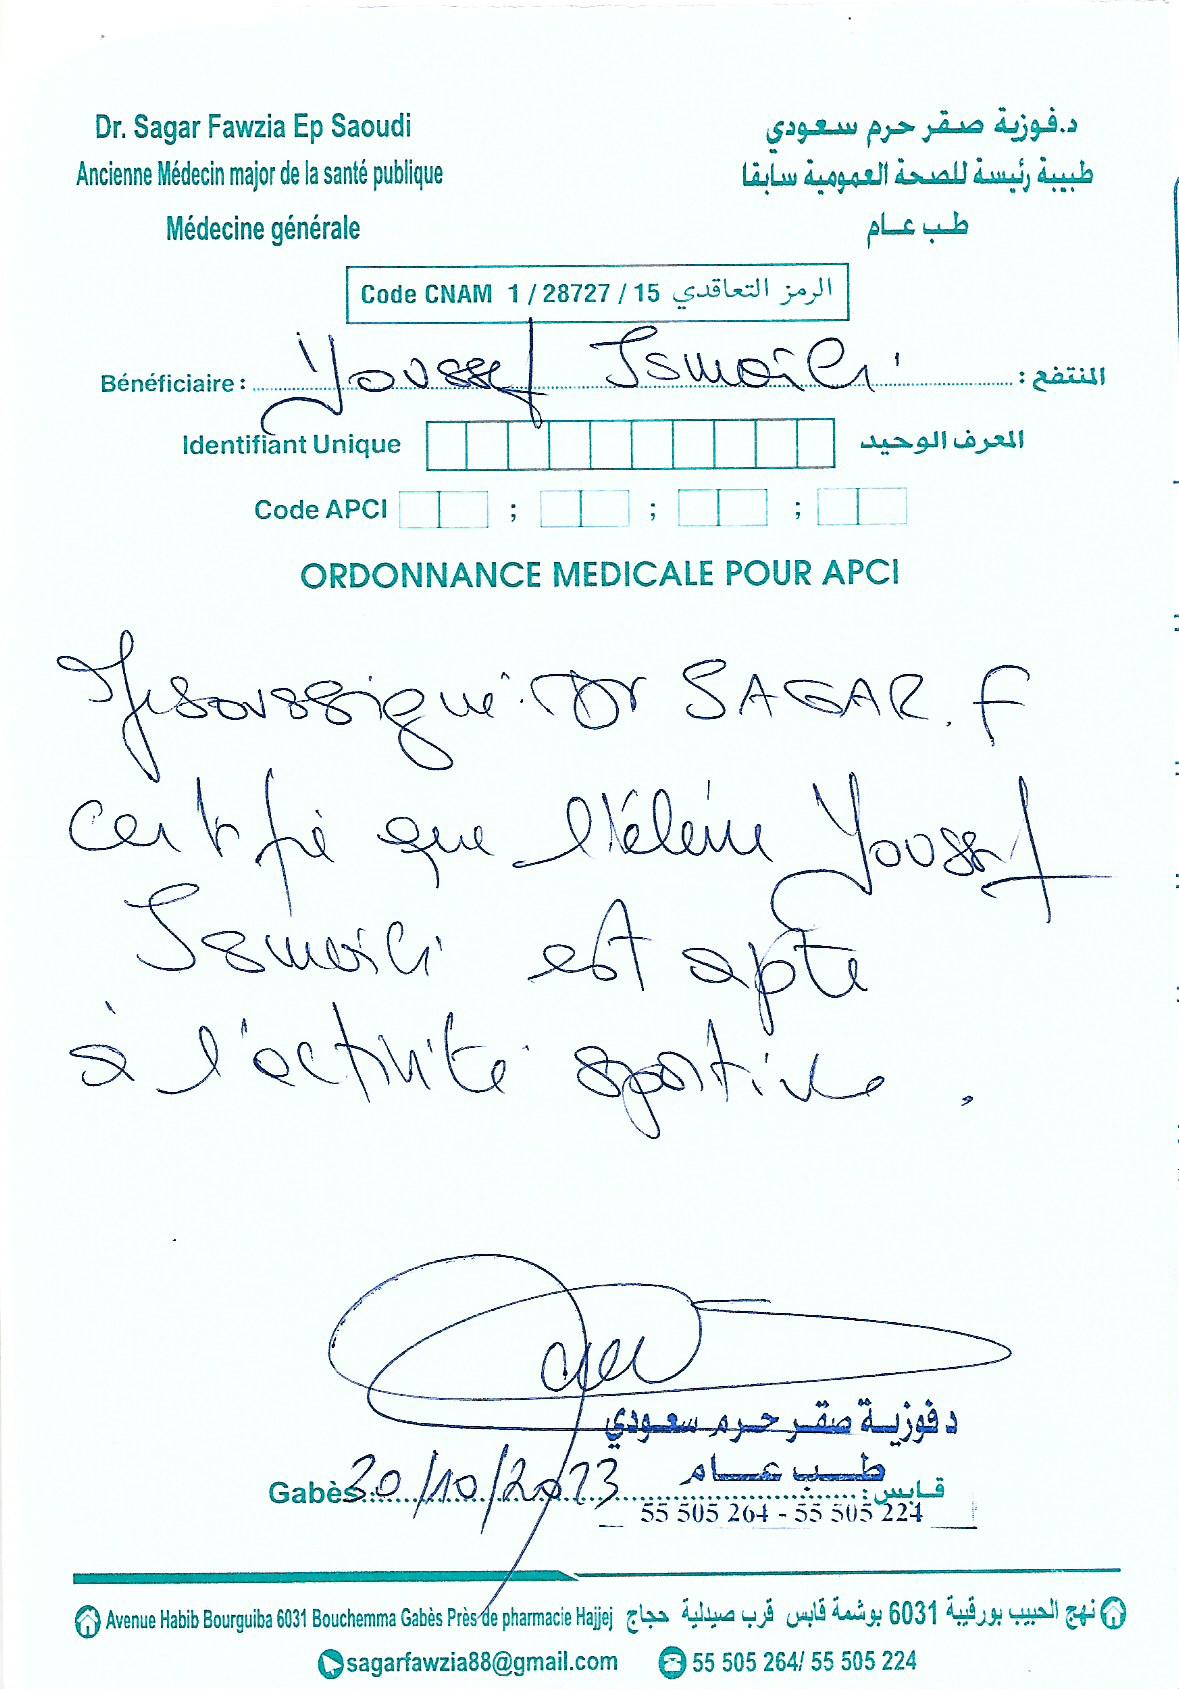 Dr. Sagar Fawzia Ep Saoudi
د.فوزية صقر حرم سعودي
Ancienne Médecin major de la santé publique
طبيبة رئيسة للصحة العمومية سابقا
Médecine générale
طب عام
Code CNAM 1 / 28727 / 15 الرمز التعاقدي
Bénéficiaire : Youssef Ismaili المنتفع :
Identifiant Unique المعرف الوحيد
Code APCI ; ; ;
ORDONNANCE MEDICALE POUR APCI
Je soussigné Dr SAGAR. F
certifie que l'élève Youssef
Ismaili est apte
à l'activité sportive.
د فوزية صقر حرم سعودي
طب عام
Gabès 30/10/2023 قابس :
55 505 264 - 55 505 224
Avenue Habib Bourguiba 6031 Bouchemma Gabès Près de pharmacie Hajjej نهج الحبيب بورقيبة 6031 بوشمة قابس قرب صيدلية حجاج
sagarfawzia88@gmail.com 55 505 264/ 55 505 224